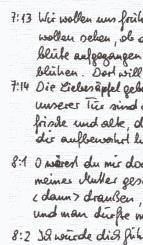 7:13 Wir wollen uns früh
wollen sehen, ob d
blüte aufgegangen
blühen. Dort will
7:14 Die Liebesäpfel geb
unserer Tür sind e
frische und alte, d
dir aufbewahrt h
8:1 O wärest du mir doc
meiner Mutter ges
<dann> draußen,
und man dürfte m
8:2 Ich würde dich füh